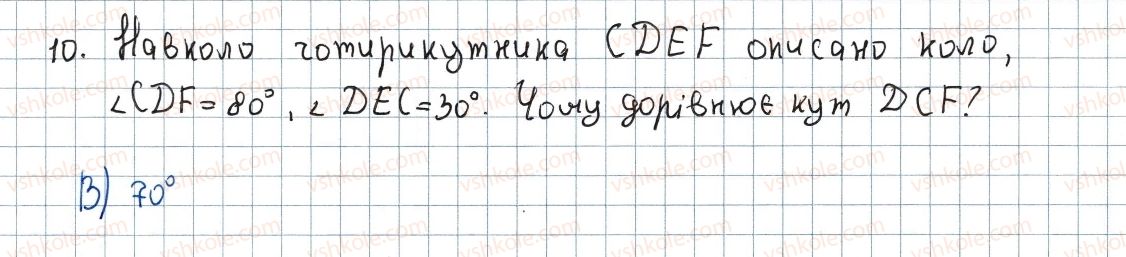 10. Навколо чотирикутника CDEF описано коло,
∠CDF = 80°, ∠DEC = 30°. Чому дорівнює кут DCF?
В) 70°